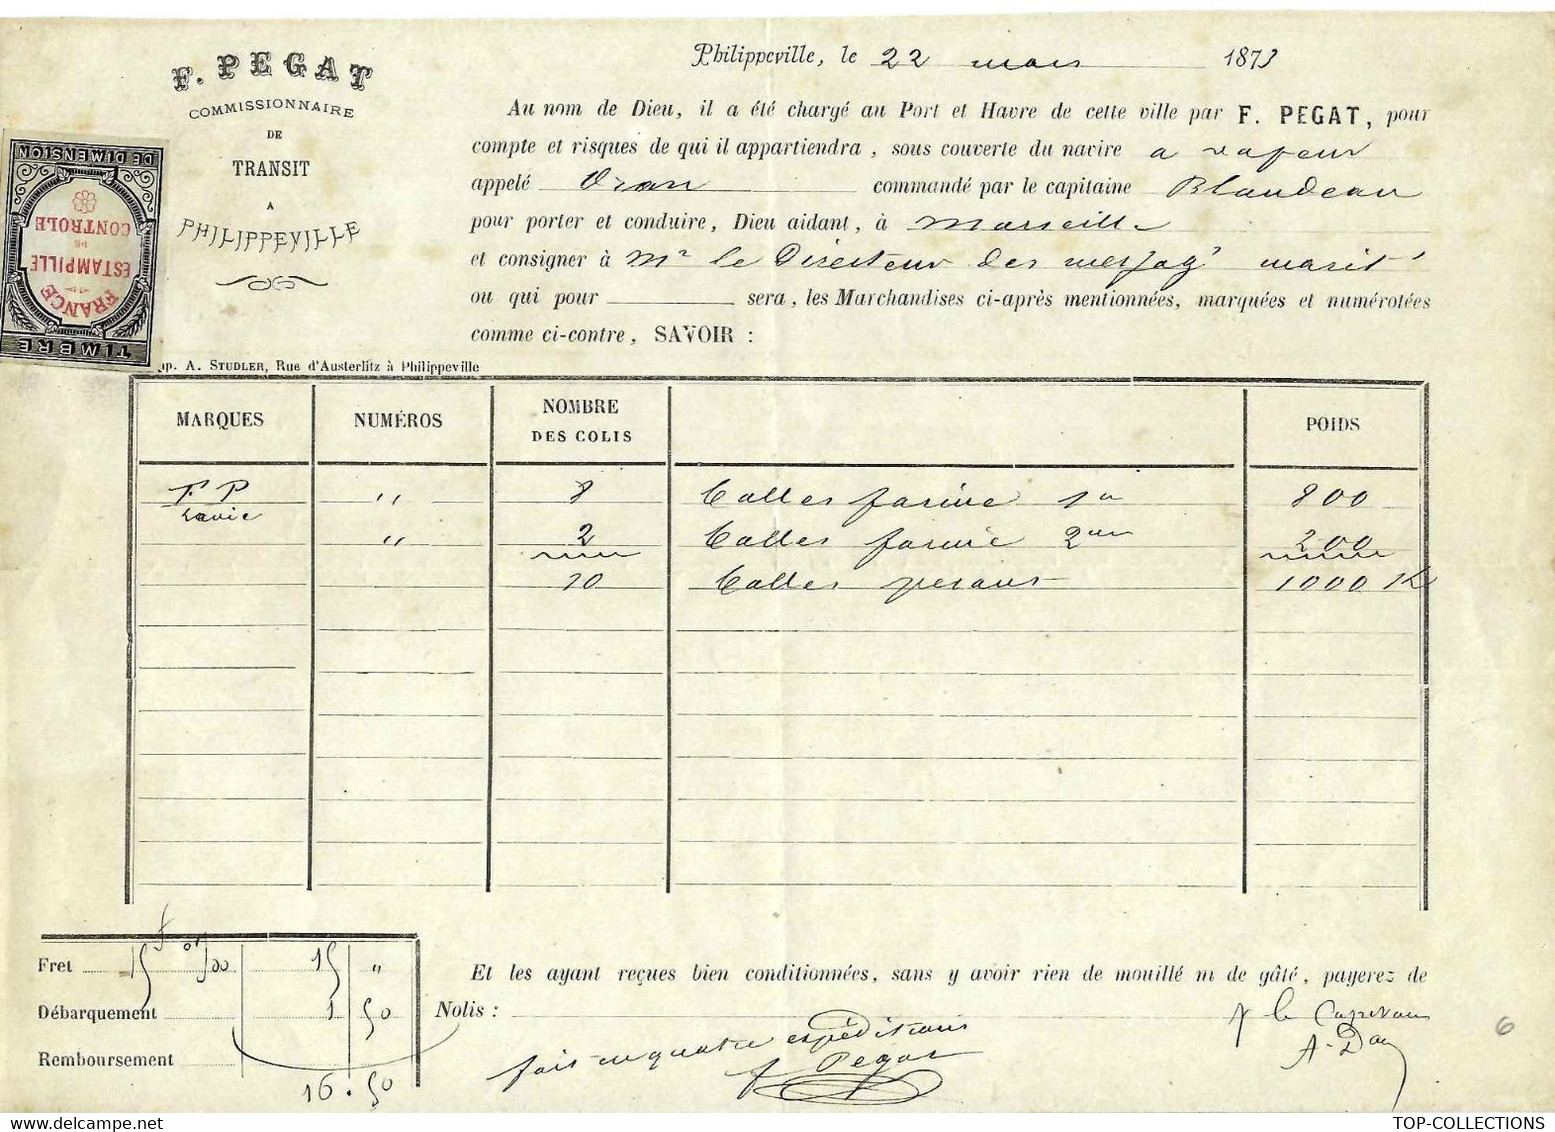 F. PEGAT
COMMISSIONNAIRE
DE
TRANSIT
A
PHILIPPEVILLE
TIMBRE
FRANCE
ESTAMPILLE
DE
CONTROLE
DE DIMENSION
Philippeville, le 22 mars 1873
Au nom de Dieu, il a été chargé au Port et Havre de cette ville par F. PEGAT, pour
compte et risques de qui il appartiendra, sous couverte du navire a vapeur
appelé Oran commandé par le capitaine Blandeau
pour porter et conduire, Dieu aidant, à Marseille
et consigner à Mr le Directeur des messag' marit'
ou qui pour sera, les Marchandises ci-après mentionnées, marquées et numérotées
comme ci-contre, SAVOIR :
A. STUDLER, Rue d'Austerlitz à Philippeville
MARQUES NUMÉROS NOMBRE DES COLIS POIDS
F. P " 8 Balles farine 1re 800
Lavie
" 2 Balles farine 2me 200
10 Balles pesant 1000 K
Fret 15 f 00 15 "
Débarquement 1 50
Remboursement
16.50
Et les ayant reçues bien conditionnées, sans y avoir rien de mouillé ni de gâté, payerez de
Nolis :
fait en quatre expéditions
F Pegat
le Capitaine
6
TOP-COLLECTIONS